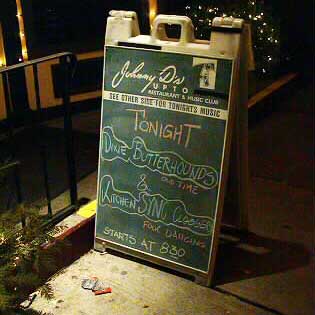 Johnny D's
UPTO
RESTAURANT & MUSIC CLUB
SEE OTHER SIDE FOR TONIGHTS MUSIC
TONIGHT
DIXIE BUTTERHOUNDS
OLD TIME
&
KITCHEN SYNC CLOGGERS
FOLK DANCING
STARTS AT 8:30